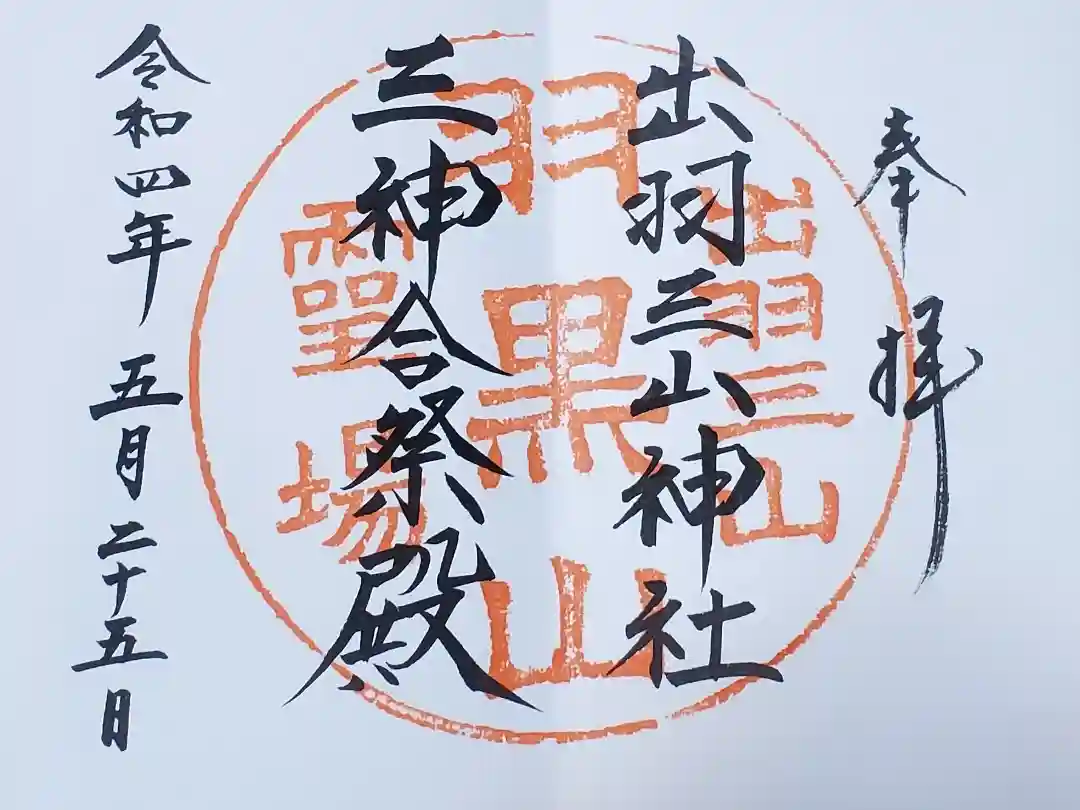 奉拝
出羽三山神社
三神合祭殿
令和四年五月二十五日
出羽三山
羽黒山
霊場